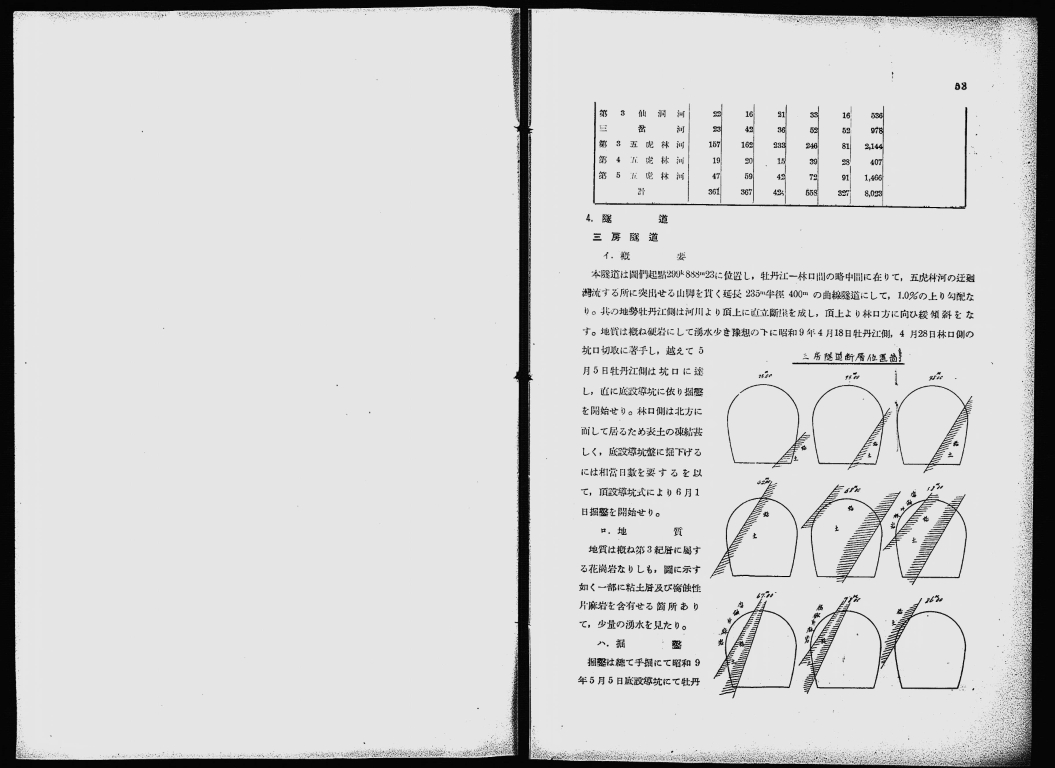 53
第 3 仙 洞 河 22 16 21 33 16 536
三 岔 河 23 42 36 52 52 978
第 3 五 虎 林 河 157 162 233 246 81 2,144
第 4 五 虎 林 河 19 20 15 39 28 407
第 5 五 虎 林 河 47 59 42 72 91 1,466
計 361 367 558 327 8,023
4. 隧 道
三 房 隧 道
イ. 概 要
本隧道は圖們起點299k888m23に位置し，牡丹江ー林口間の略中間に在りて，五虎林河の迂廻
灣流する所に突出せる山脚を貫く延長 235m半徑 400m の曲線隧道にして，1.0%の上り勾配な
り。其の地勢牡丹江側は河川より頂上に直立斷崖を成し，頂上より林口方に向ひ緩 傾 斜 を な
す。地質は概ね硬岩にして湧水少き豫想の下に昭和 9 年 4 月18日牡丹江側，4 月28日林口側の
坑口切取に著手し，越えて 5
月 5 日牡丹江側は 坑 口 に 達
し，直に底設導坑に依り掘鑿
を開始せり。林口側は北方に
面して居るため表土の凍結甚
しく，底設導坑盤に掘下げる
には相當日數を 要 す る を 以
て，頂設導坑式により 6 月 1
日掘鑿を開始せり。
ロ. 地 質
地質は概ね第 3 紀層に屬す
る花崗岩なりしも，圖に示す
如く一部に粘土層及び腐蝕性
片麻岩を含有せる 箇 所 あ り
て，少量の湧水を見たり。
ハ. 掘 鑿
掘鑿は總て手掘にて昭和 9
年 5 月 5 日底設導坑にて牡丹
三房隧道斷層位置圖
粘 土
粘 土
粘 土
粘 土
68m00
粘 土
粘 土
67m00
粘 土